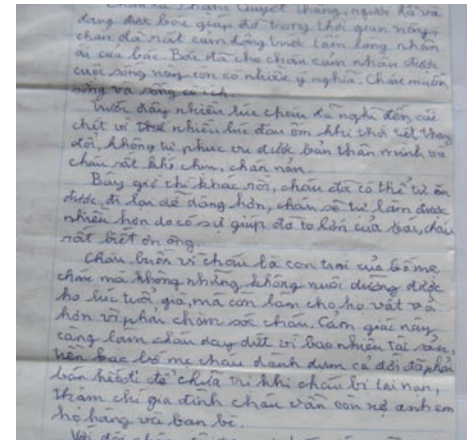 Cháu là Phạm Quyết Thắng, người đã và
đang được bác giúp đỡ trong thời gian này,
cháu đã rất cảm động trước tấm lòng nhân
ái của bác. Bác đã cho cháu cảm nhận được
cuộc sống này còn có nhiều ý nghĩa. Cháu muốn
sống và sống có ích.
Trước đây nhiều lúc cháu đã nghĩ đến cái
chết vì nhiều lúc đau ốm khi thời tiết thay
đổi, không tự phục vụ được bản thân mình và
cháu rất khó chịu, chán nản.
Bây giờ thì khác rồi, cháu đã có thể tự ăn
được, đi lại dễ dàng hơn, cháu sẽ tự làm được
nhiều hơn do có sự giúp đỡ to lớn của bác, cháu
rất biết ơn ông.
Cháu buồn vì cháu là con trai của bố mẹ
cháu mà không những không nuôi dưỡng được
họ lúc tuổi già, mà còn làm cho họ vất vả
hơn vì phải chăm sóc cháu. Cảm giác này
càng làm cháu day dứt vì bao nhiêu tài sản,
tiền bạc bố mẹ cháu dành dụm cả đời đã phải
bán hết đi để chữa trị khi cháu bị tai nạn,
thậm chí gia đình cháu vẫn còn nợ anh em
họ hàng và bạn bè.
Với